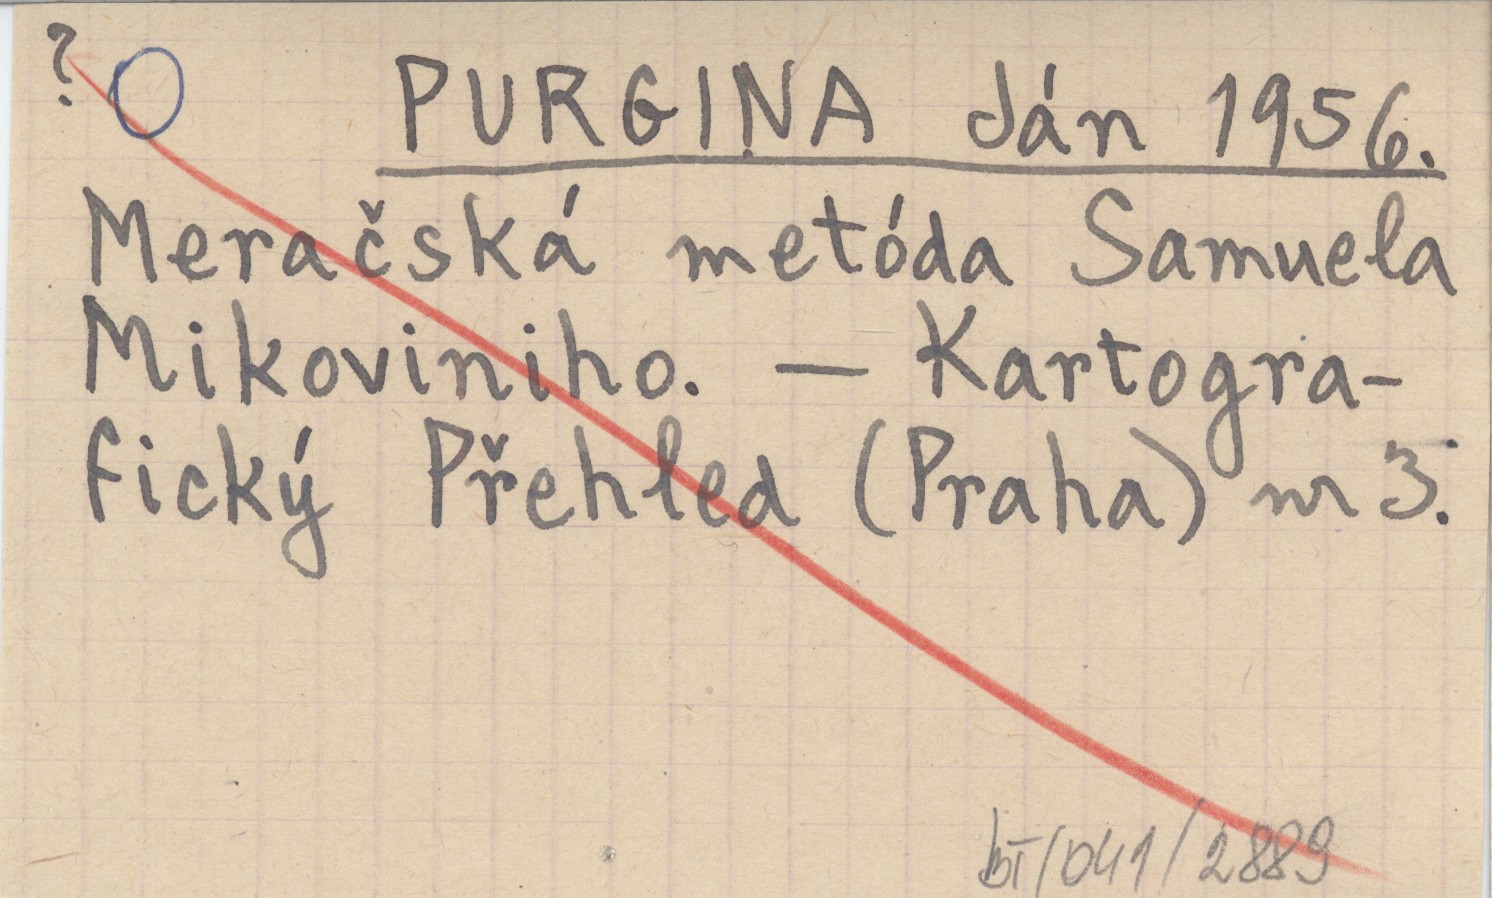 ?
PURGINA Ján 1956.
Meračská metóda Samuela
Mikoviniho. — Kartogra-
fický Přehled (Praha) nr 3.
bT/041/2889